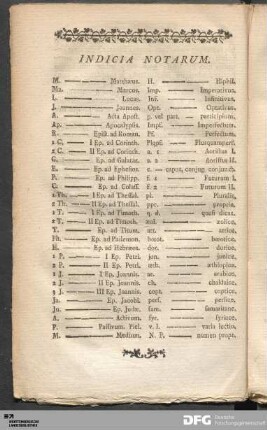 INDICIA NOTARUM.
M. — Matthæus. H. — Hiphil.
Ma. — Marcus. Imp. — Imperativus.
L. — Lucas. Inf. — Infinitivus.
J. — Joannes. Opt. — Optativus.
A. — Acta Apost. p. vel part. — participium.
Ap. — Apocalypsis. Impf. — Imperfectum.
R. — Epist. ad Roman. Pf. — Perfectum.
1 C. — I Ep. ad Corinth. Plqpf. — Plusquampf.
2 C. — II Ep. ad Corinth. a. 1 — Aoristus I.
G. — Ep. ad Galatas. a. 2 — Aoristus II.
E. — Ep. ad Ephesios. c. — capus, conjug. conjunct.
P. — Ep. ad Philipp. f. 1 — Futurum I.
C. — Ep. ad Coloss. f. 2 — Futurum II.
1 Th. — I Ep. ad Thessal. pl. — Pluralis.
2 Th. — II Ep. ad Thessal. ppr. — proprie.
1 T. — I Ep. ad Timoth. q. d. — quasi dicas.
2 T. — II Ep. ad Timoth. — activa.
T. — Ep. ad Titum. act. — active.
Ph. — Ep. ad Philemon. horat. — horatice.
H. — Ep. ad Hebræos. dor. — dorice.
1 P. — I Ep. Petri. jon. — jonice.
2 P. — II Ep. Petri. æth. — æthiopice.
1 J. — I Ep. Joannis. ar. — arabice.
2 J. — II Ep. Joannis. ch. — chaldaice.
3 J. — III Ep. Joannis. copt. — coptice.
Ja. — Ep. Jacobi. perf. — persice.
Ju. — Ep. Judæ. sam. — samaritane.
A. — Activum. syr. — syriace.
P. — Passivum. v. l. — varia lectio.
M. — Medium. N. P. — nomen propr.
DFG Deutsche
Forschungsgemeinschaft